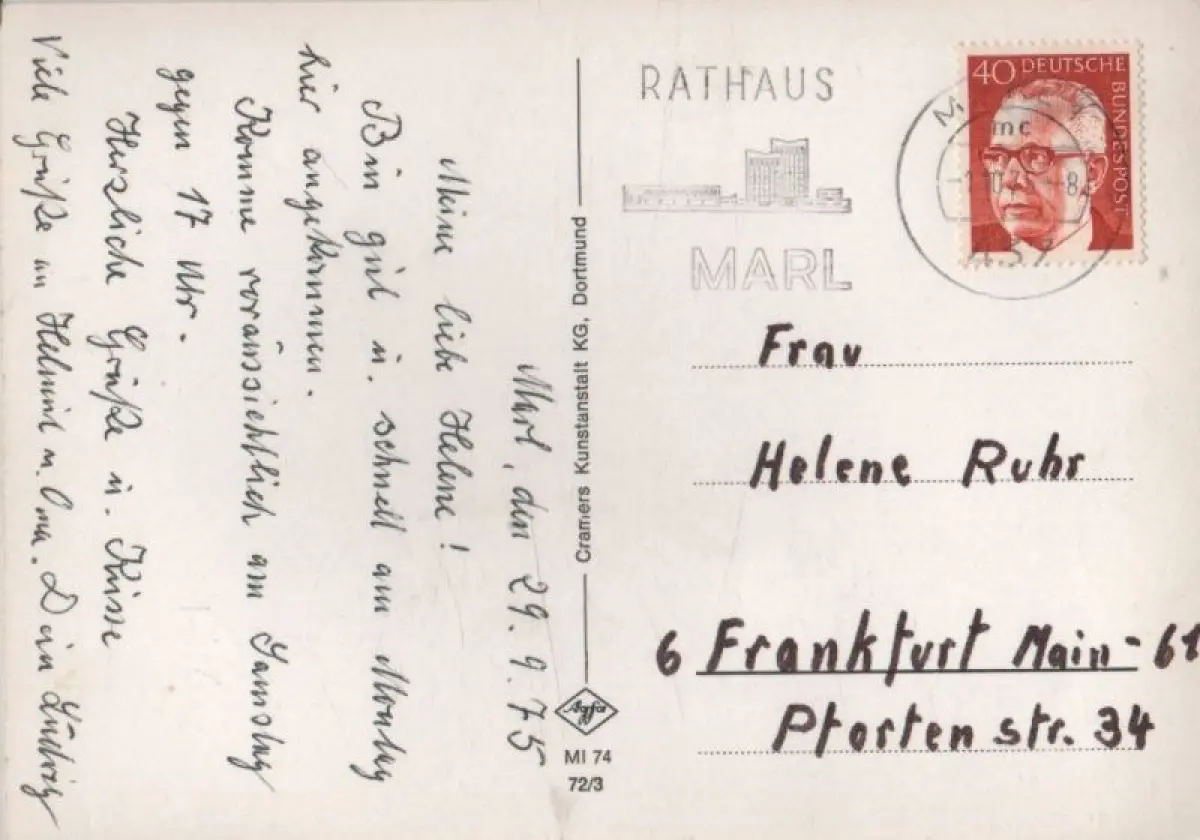 Marl, den 29. 9. 75
Meine liebe Helene!
Bin gut u. schnell am Montag
hier angekommen.
Komme voraussichtlich am Samstag
gegen 17 Uhr.
Herzliche Grüße u. Küsse
Viele Grüße an Helmut u. Oma. Dein Ludwig
Cramers Kunstanstalt KG, Dortmund
Agfa
MI 74
72/3
RATHAUS
MARL
40 DEUTSCHE
BUNDESPOST
mc
Frau
Helene Ruhr
6 Frankfurt Main-61
Pfortenstr. 34